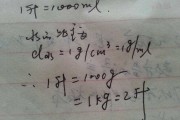 1升=1000ml.
d水=1g/cm³=1g/ml
∴ 1升=1000g
=1kg=2斤